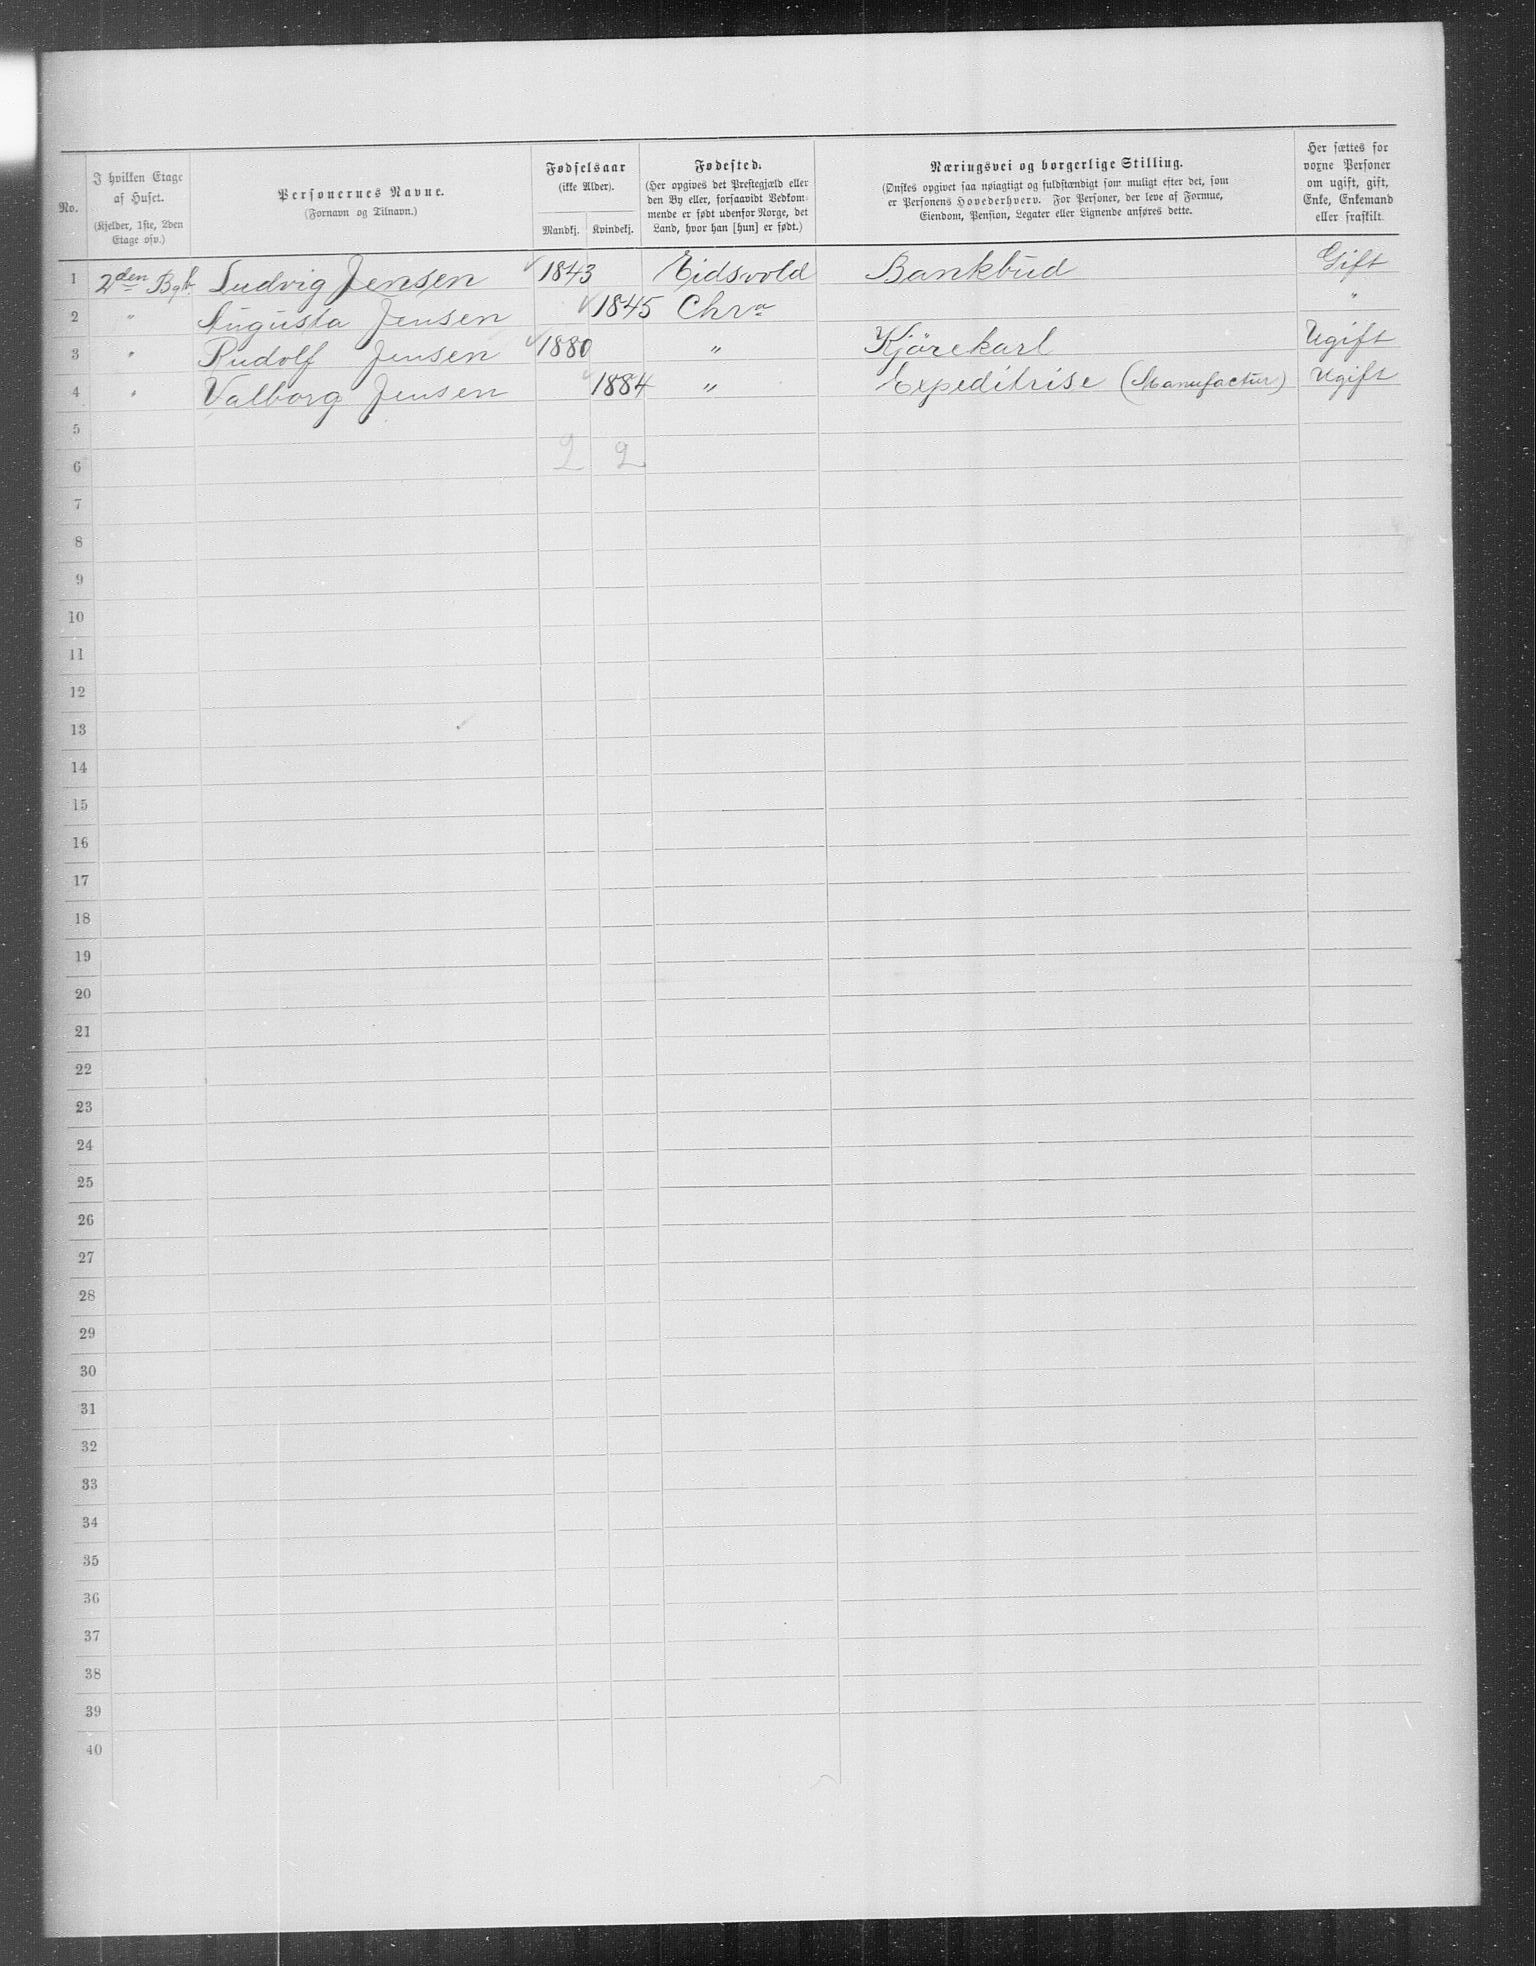 No.
I hvilken Etage af Huset.
(Kjelder, 1ste, 2den Etage osv.)
Personernes Navne.
(Fornavn og Tilnavn.)
Fødselsaar
(ikke Alder).
Mandkj. Kvindekj.
Fødested.
(Her opgives det Prestegjæld eller den By eller, forsaavidt Vedkommende er født udenfor Norge, det Land, hvor han [hun] er født.)
Næringsvei og borgerlige Stilling.
(Ønskes opgivet saa nøiagtigt og fuldstændigt som muligt efter det, som er Personens Hovederhverv. For Personer, der leve af Formue, Eiendom, Pension, Legater eller Lignende anføres dette.
Her sættes for voxne Personer om ugift, gift, Enke, Enkemand eller fraskilt.
1 2den Bgb. Ludvig Jensen 1843 Eidsvold Bankbud Gift
2 " Augusta Jensen 1845 Chra "
3 " Rudolf Jensen 1880 " Kjörekarl Ugift
4 " Valborg Jensen 1884 " Expeditrise (Manufactur) Ugift
5
6 2 2
7
8
9
10
11
12
13
14
15
16
17
18
19
20
21
22
23
24
25
26
27
28
29
30
31
32
33
34
35
36
37
38
39
40